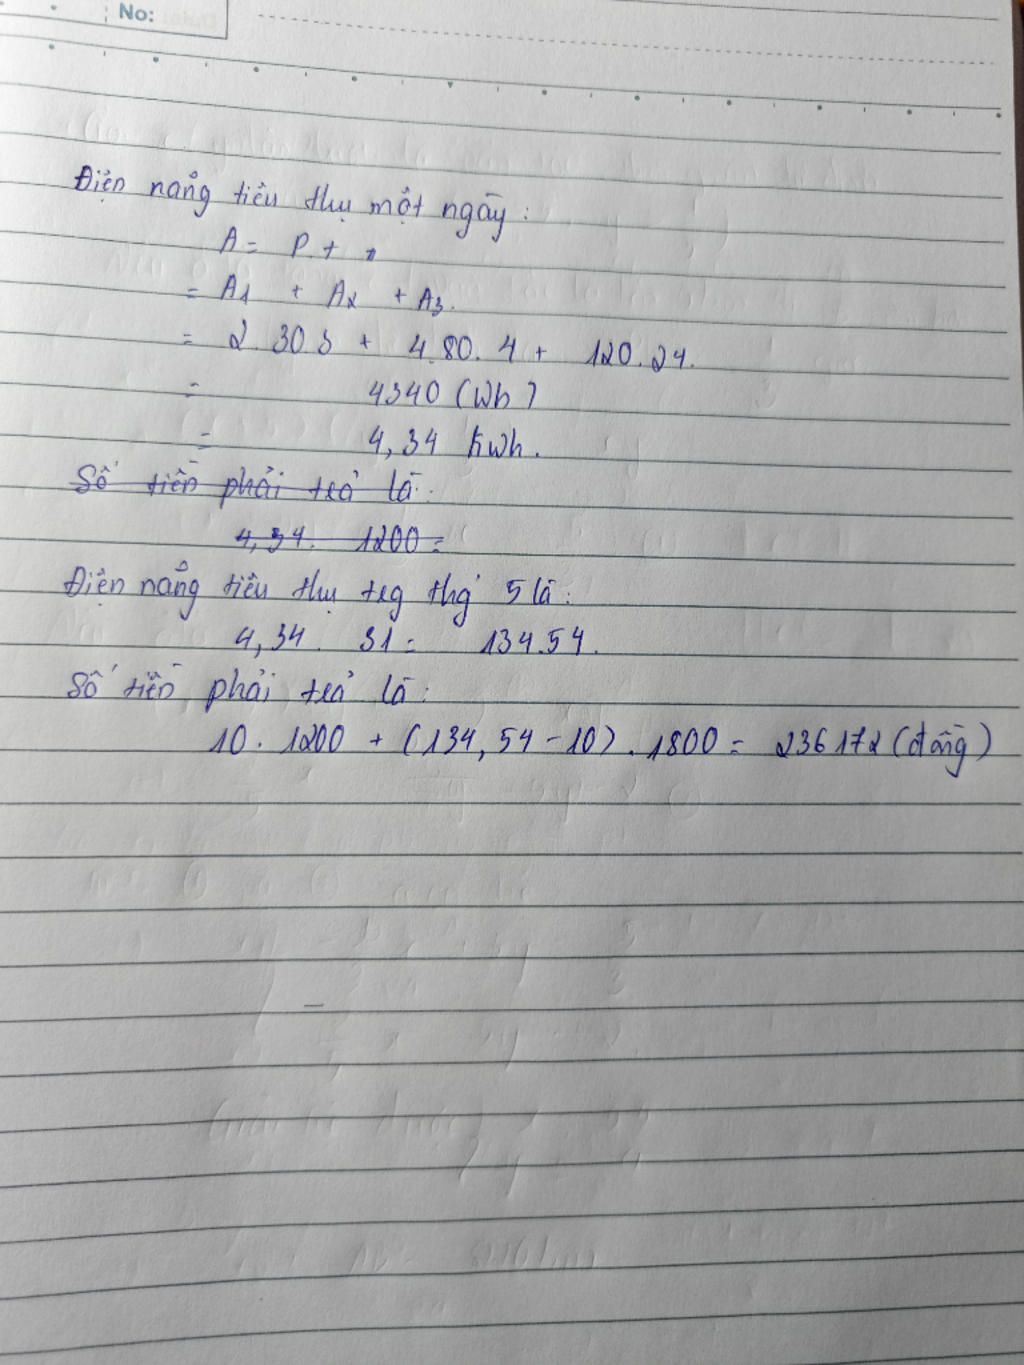 No:
Điện năng tiêu thụ một ngày:
A = P. t
= A1 + A2 + A3.
= 2 30 3 + 4.80. 4 + 120.24.
= 4340 (Wh)
= 4,34 kWh.
Số tiền phải trả là:
4,34. 1200 =
Điện năng tiêu thụ trg thg 5 là:
4,34. 31 = 134.54.
Số tiền phải trả là:
10. 1200 + (134,54-10). 1800 = 236172 (đồng)